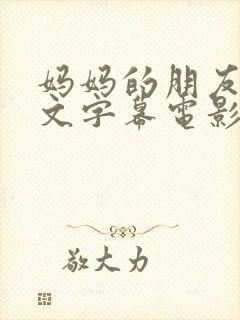 妈妈的朋友
文字幕电影
敬大力